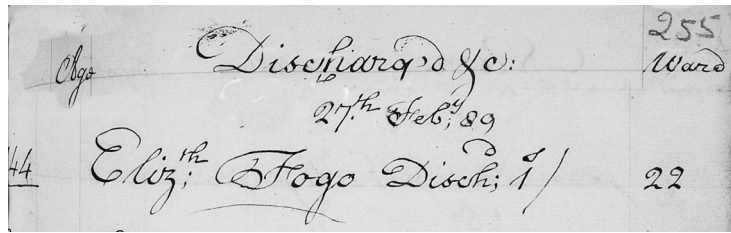 255
Age Discharg'd &c: Ward
27th Feby; 89
44 Elizth; Fogo Disch;d 1/ 22